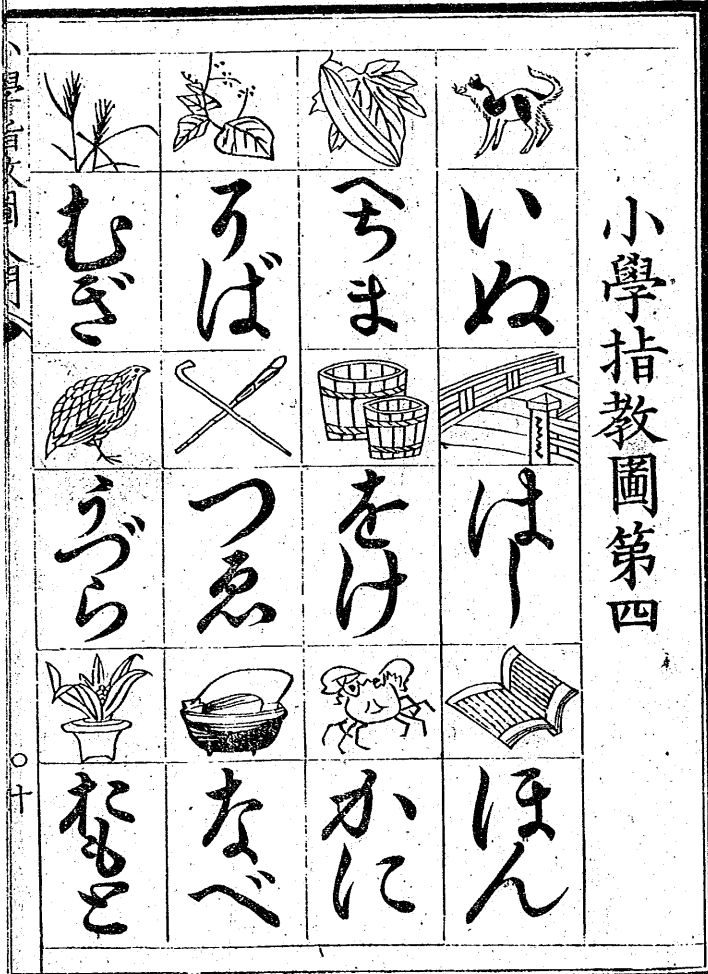 小學指教圖第四
いぬ
はし
ほん
へちま
をけ
かに
そば
つゑ
なべ
むぎ
うづら
おもと
小學指教圖入門
〇十